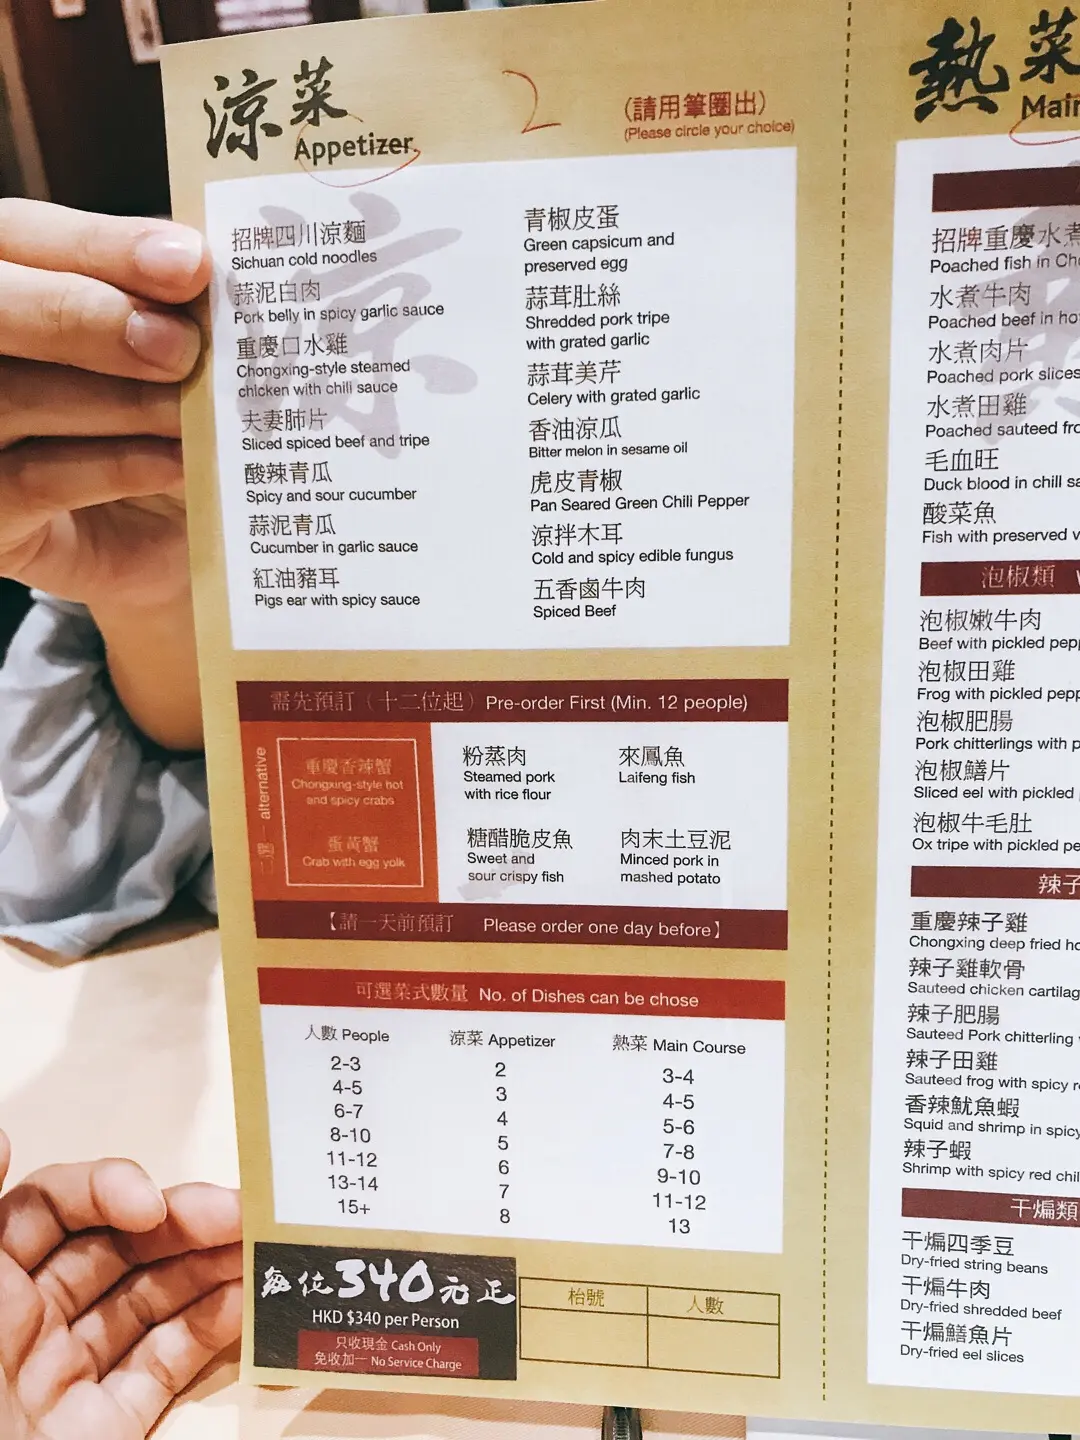 涼菜
Appetizer
2
(請用筆圈出)
(Please circle your choice)
招牌四川涼麵
Sichuan cold noodles
蒜泥白肉
Pork belly in spicy garlic sauce
重慶口水雞
Chongxing-style steamed
chicken with chili sauce
夫妻肺片
Sliced spiced beef and tripe
酸辣青瓜
Spicy and sour cucumber
蒜泥青瓜
Cucumber in garlic sauce
紅油豬耳
Pigs ear with spicy sauce
青椒皮蛋
Green capsicum and
preserved egg
蒜茸肚絲
Shredded pork tripe
with grated garlic
蒜茸美芹
Celery with grated garlic
香油涼瓜
Bitter melon in sesame oil
虎皮青椒
Pan Seared Green Chili Pepper
涼拌木耳
Cold and spicy edible fungus
五香鹵牛肉
Spiced Beef
涼
需先預訂（十二位起）Pre-order First (Min. 12 people)
二選一 alternative
重慶香辣蟹
Chongxing-style hot
and spicy crabs
蛋黃蟹
Crab with egg yolk
粉蒸肉
Steamed pork
with rice flour
來鳳魚
Laifeng fish
糖醋脆皮魚
Sweet and
sour crispy fish
肉末土豆泥
Minced pork in
mashed potato
【請一天前預訂 Please order one day before】
可選菜式數量 No. of Dishes can be chose
人數 People 涼菜 Appetizer 熱菜 Main Course
2-3 2 3-4
4-5 3 4-5
6-7 4 5-6
8-10 5 7-8
11-12 6 9-10
13-14 7 11-12
15+ 8 13
每位340元正
HKD $340 per Person
只收現金 Cash Only
免收加一 No Service Charge
枱號 人數
熱菜
Main
招牌重慶水煮
Poached fish in Ch
水煮牛肉
Poached beef in ho
水煮肉片
Poached pork slices
水煮田雞
Poached sauteed fro
毛血旺
Duck blood in chill sa
酸菜魚
Fish with preserved v
泡椒類
泡椒嫩牛肉
Beef with pickled pepp
泡椒田雞
Frog with pickled pepp
泡椒肥腸
Pork chitterlings with p
泡椒鱔片
Sliced eel with pickled
泡椒牛毛肚
Ox tripe with pickled pe
辣子
重慶辣子雞
Chongxing deep fried ho
辣子雞軟骨
Sauteed chicken cartilag
辣子肥腸
Sauteed Pork chitterling
辣子田雞
Sauteed frog with spicy re
香辣魷魚蝦
Squid and shrimp in spicy
辣子蝦
Shrimp with spicy red chil
干煸類
干煸四季豆
Dry-fried string beans
干煸牛肉
Dry-fried shredded beef
干煸鱔魚片
Dry-fried eel slices